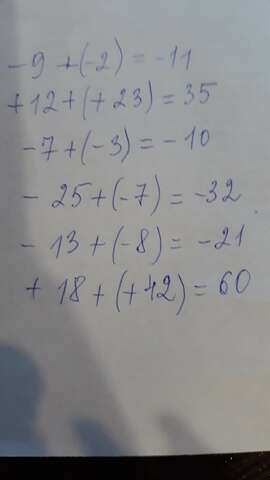 -9 +(-2) = -11
+12+(+23) = 35
-7+(-3) = -10
- 25+(-7) = -32
- 13+(-8) = -21
+ 18+(+42) = 60